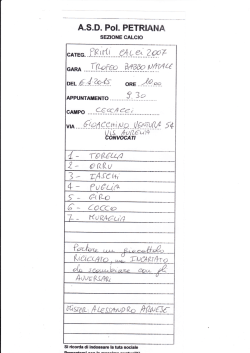 A.S.D. Pol. PETRIANA
SEZIONE CALCIO
CATEG. PRIMI CALCI 2007
GARA TROFEO BABBO NATALE
DEL 6/1/2015 ORE 10,00
APPUNTAMENTO 9.30
CAMPO CECCACCI
VIA GIOACCHINO VENTURA 54
VIA AURELIA
CONVOCATI
1 - TORELLA
2 - ORRU
3 - IASCHI
4 - PUGLIA
5 - GIRO
6 - COCCO
7 - MURAGLIA
Portare un giocattolo
RICICLATO, ma INCARTATO
da scambiare con gli
AVVERSARI
MISTER ALESSANDRO
Si ricorda di indossare la tuta sociale